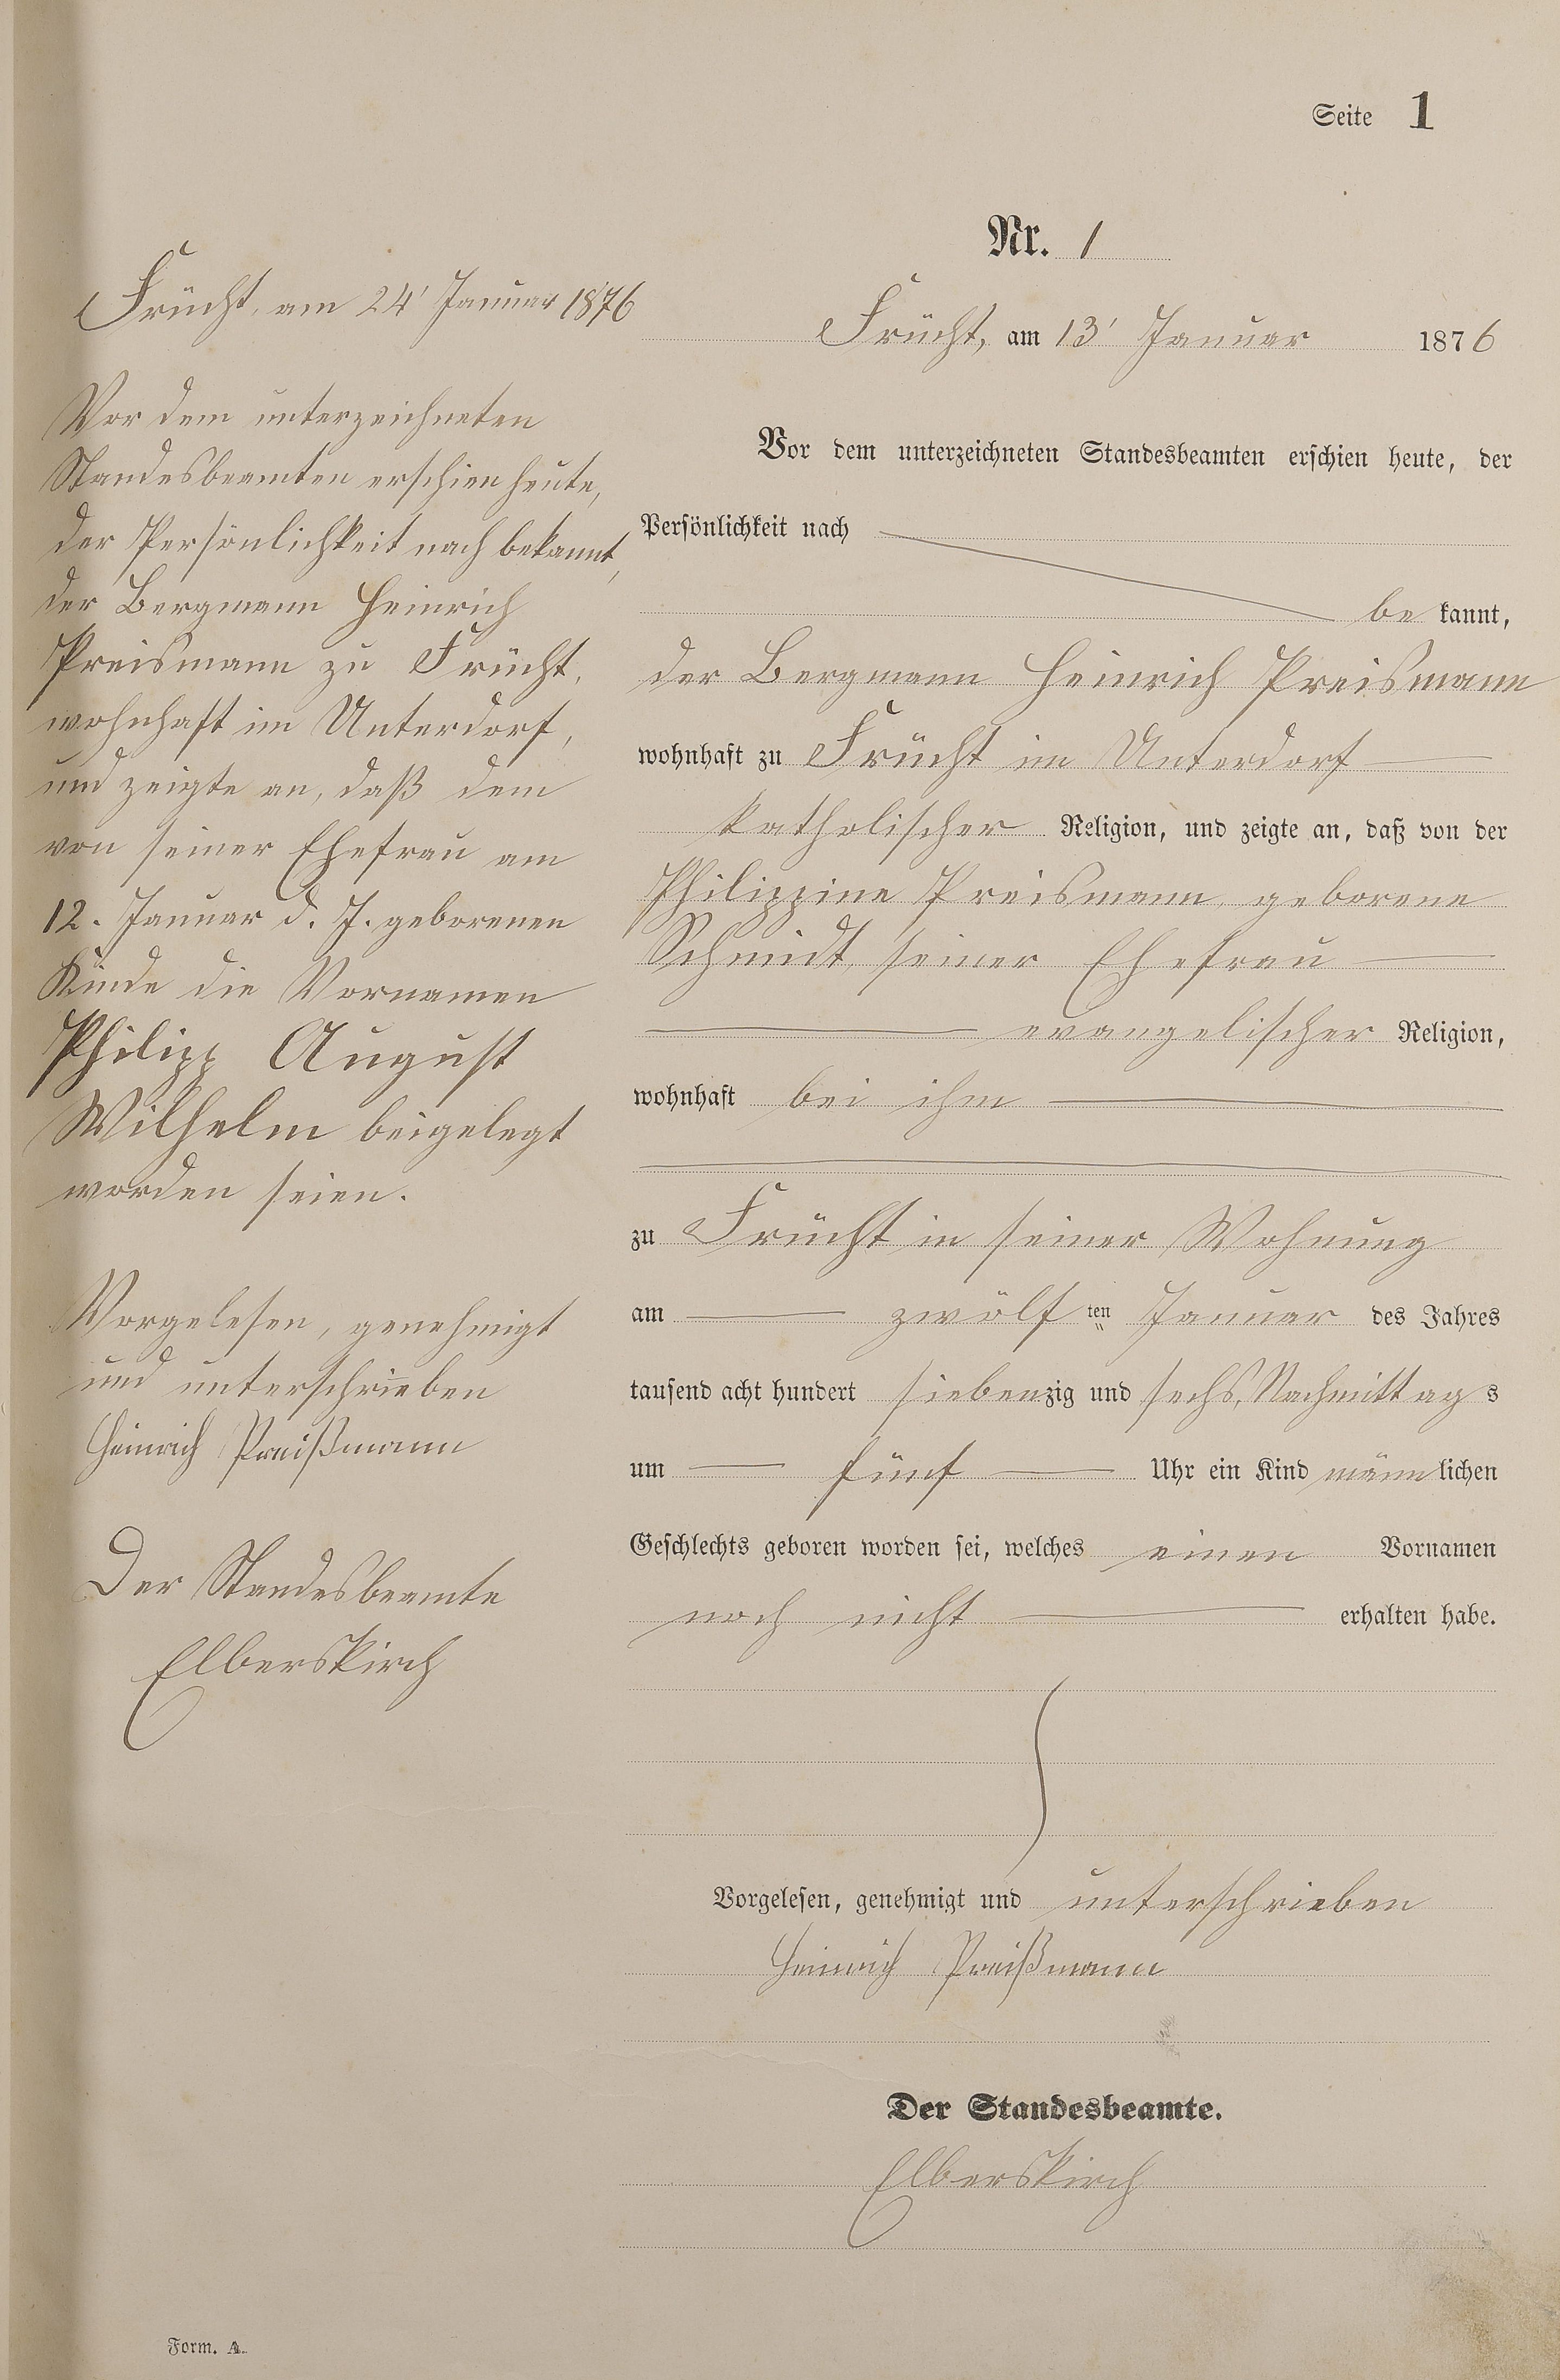 Seite 1
Nr. 1
Frücht, am 24' Januar 1876
Vor dem unterzeichneten
Standesbeamten erschien heute,
der Persönlichkeit nach bekannt,
der Bergmann Heinrich
Preismann zu Frücht,
wohnhaft im Unterdorf,
und zeigte an, daß dem
von seiner Ehefrau am
12. Januar d. J. geborenen
Kinde die Vornamen
Philipp August
Wilhelm beigelegt
worden seien.
Vorgelesen, genehmigt
und unterschrieben
Heinrich Preißmann
Der Standesbeamte
Elberskirch
Frücht, am 13' Januar 1876
Vor dem unterzeichneten Standesbeamten erschien heute, der
Persönlichkeit nach
be kannt,
der Bergmann Heinrich Preismann
wohnhaft zu Frücht im Unterdorf
katholischer Religion, und zeigte an, daß von der
Philippine Preismann, geborene
Schmidt, seiner Ehefrau
evangelischer Religion,
wohnhaft bei ihm
zu Frücht in seiner Wohnung
am zwölf ten Januar des Jahres
tausend acht hundert siebenzig und sechs, Nachmittag s
um fünf Uhr ein Kind männlichen
Geschlechts geboren worden sei, welches einen Vornamen
noch nicht erhalten habe.
Vorgelesen, genehmigt und unterschrieben
Heinrich Preißmann
Der Standesbeamte.
Elberskirch
Form. A.